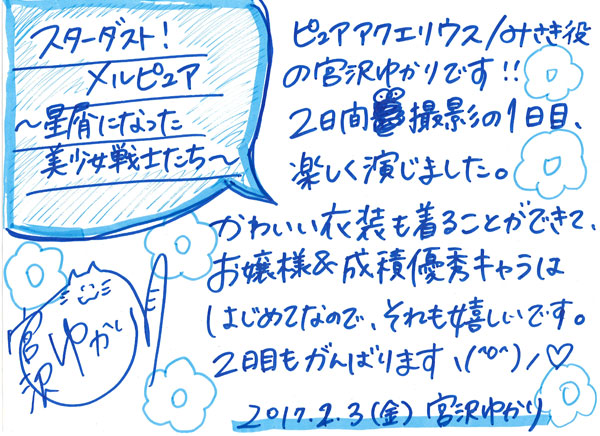 スターダスト!
メルピュア
～星屑になった
美少女戦士たち～
ピュアアクエリウス/みさき役
の宮沢ゆかりです!!
2日間撮影の1日目、
楽しく演じました。
かわいい衣装も着ることができて、
お嬢様&成積優秀キャラは
はじめてなので、それも嬉しいです。
2日目もがんばりますヽ(^o^)ノ♡
2017.2.3(金) 宮沢ゆかり
宮沢ゆかり